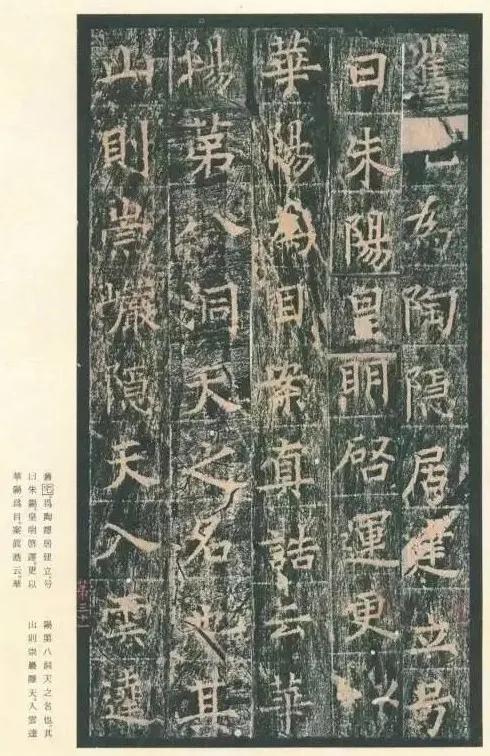 舊為陶隱居建立号
曰朱陽皇明啓運更以
華陽為目案真誥云華
陽第八洞天之名也其
山則崇巖隱天入雲達
舊宅爲陶隱居建立。号
曰朱陽皇明啓運。更以
華陽爲目。案眞誥云。華
陽第八洞天之名也。其
山則崇巖隱天。入雲達